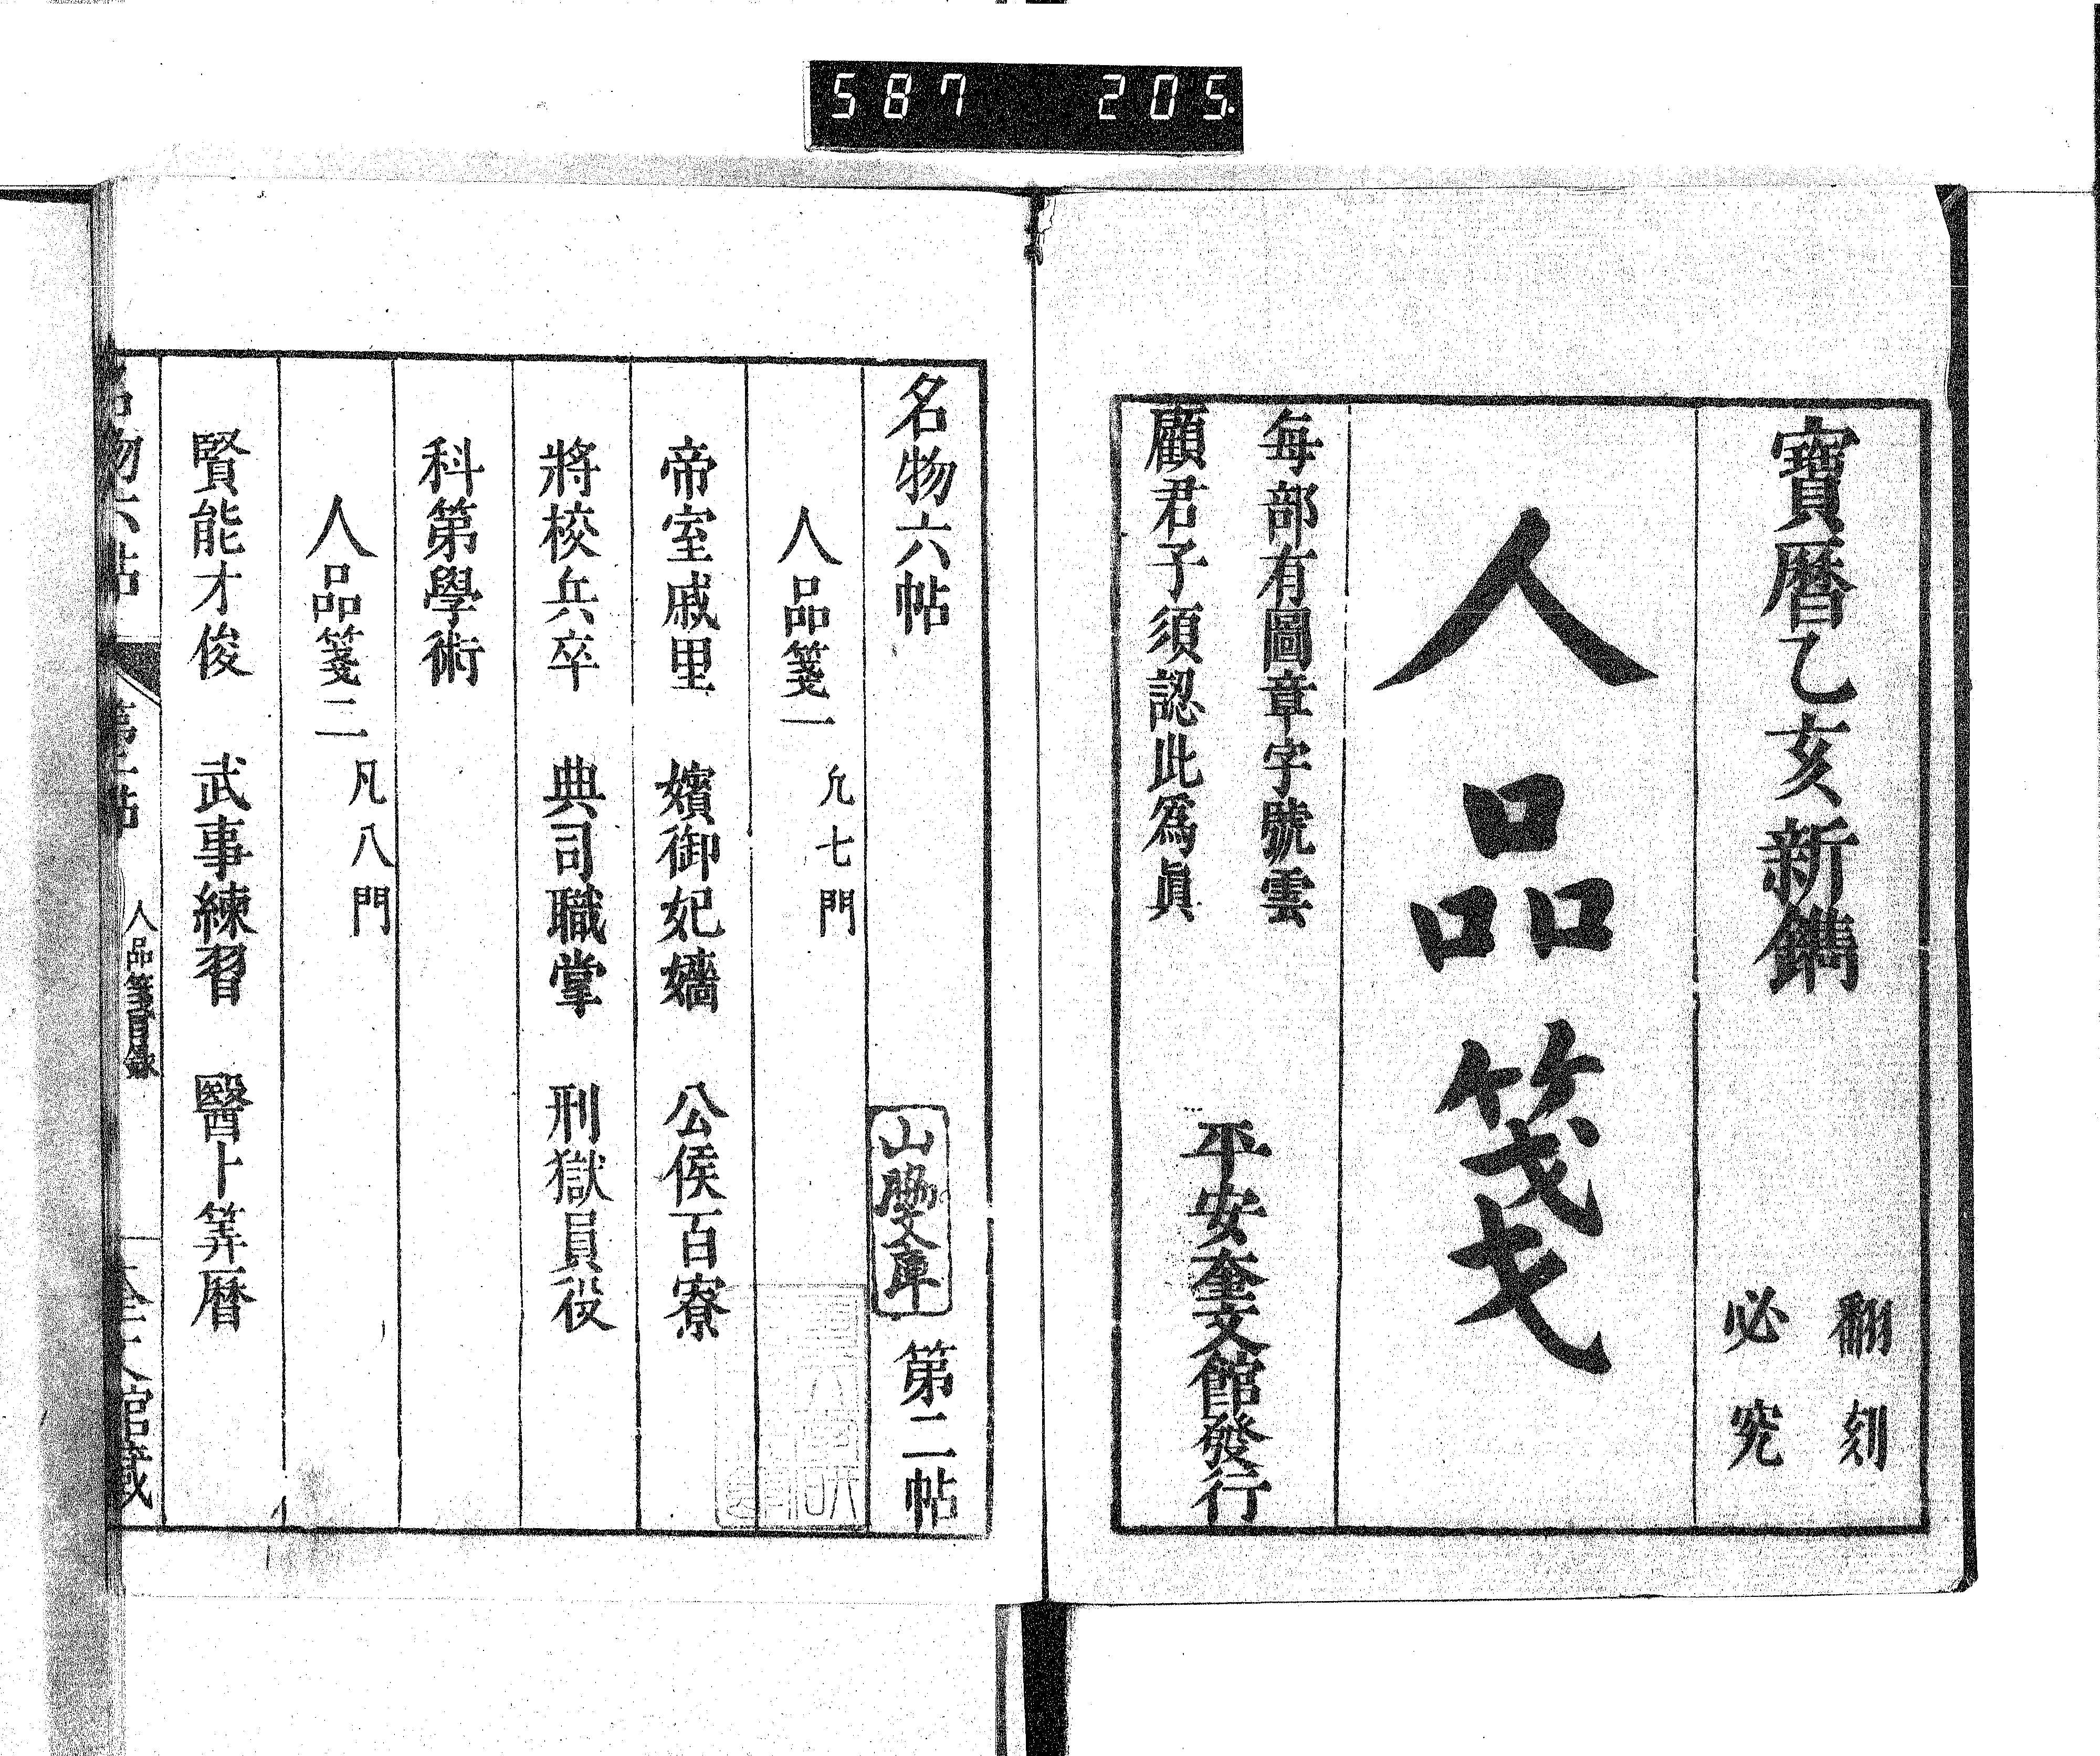 587 205.
寶曆乙亥新鐫
翻刻
必究
人品箋
每部有圖章字號雲
顧君子須認此爲眞
平安奎文館發行
名物六帖
山脇文庫
第二帖
人品箋一 凢七門
帝室戚里 嬪御妃嬙 公侯百寮
將校兵卒 典司職掌 刑獄員役
科第學術
人品箋二 凡八門
賢能才俊 武事練習 醫卜筭曆
人品箋目錄
館藏